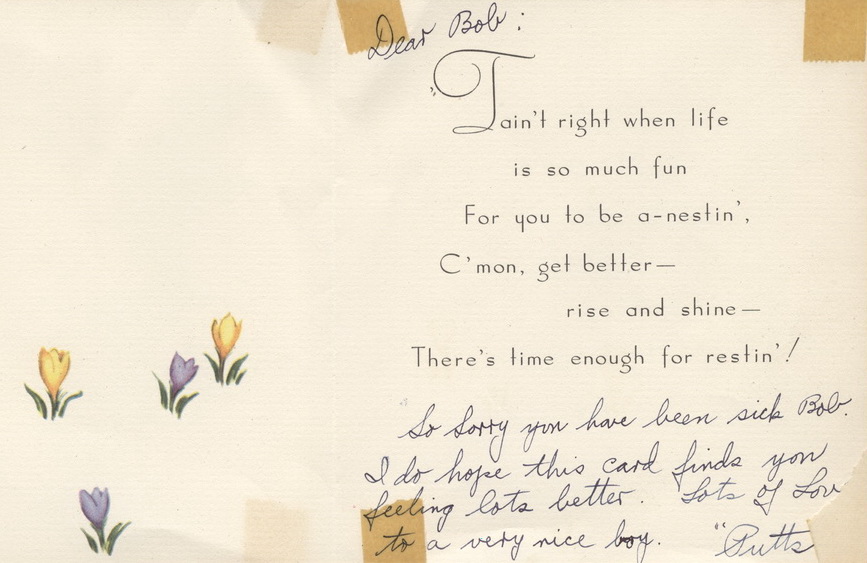 Dear Bob:
"Tain't right when life
is so much fun
For you to be a-nestin',
C'mon, get better—
rise and shine—
There's time enough for restin'!
So Sorry you have been sick Bob.
I do hope this card finds you
feeling lots better. Lots of Lov
to a very nice boy. "Putts